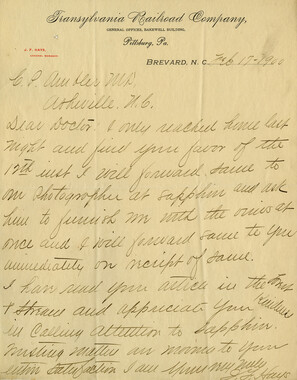 Transylvania Railroad Company,
GENERAL OFFICES, BAKEWELL BUILDING,
Pittsburg, Pa.
J. F. HAYS,
BREVARD, N. C. Feb 15 1900
C. P. Ambler MD
Asheville. N.C.
Dear Doctor. I only reached home last
night and find your favor of the
12th inst I will forward same to
our Photographer at Sapphire and ask
him to furnish me with the views at
once and I will forward same to you
immediately on receipt of same.
I have read your article in the
& and appreciate your kindness
in Calling Attention to Sapphire.
matters are
entire Satisfaction I am yours very Truly
J. F. Hays